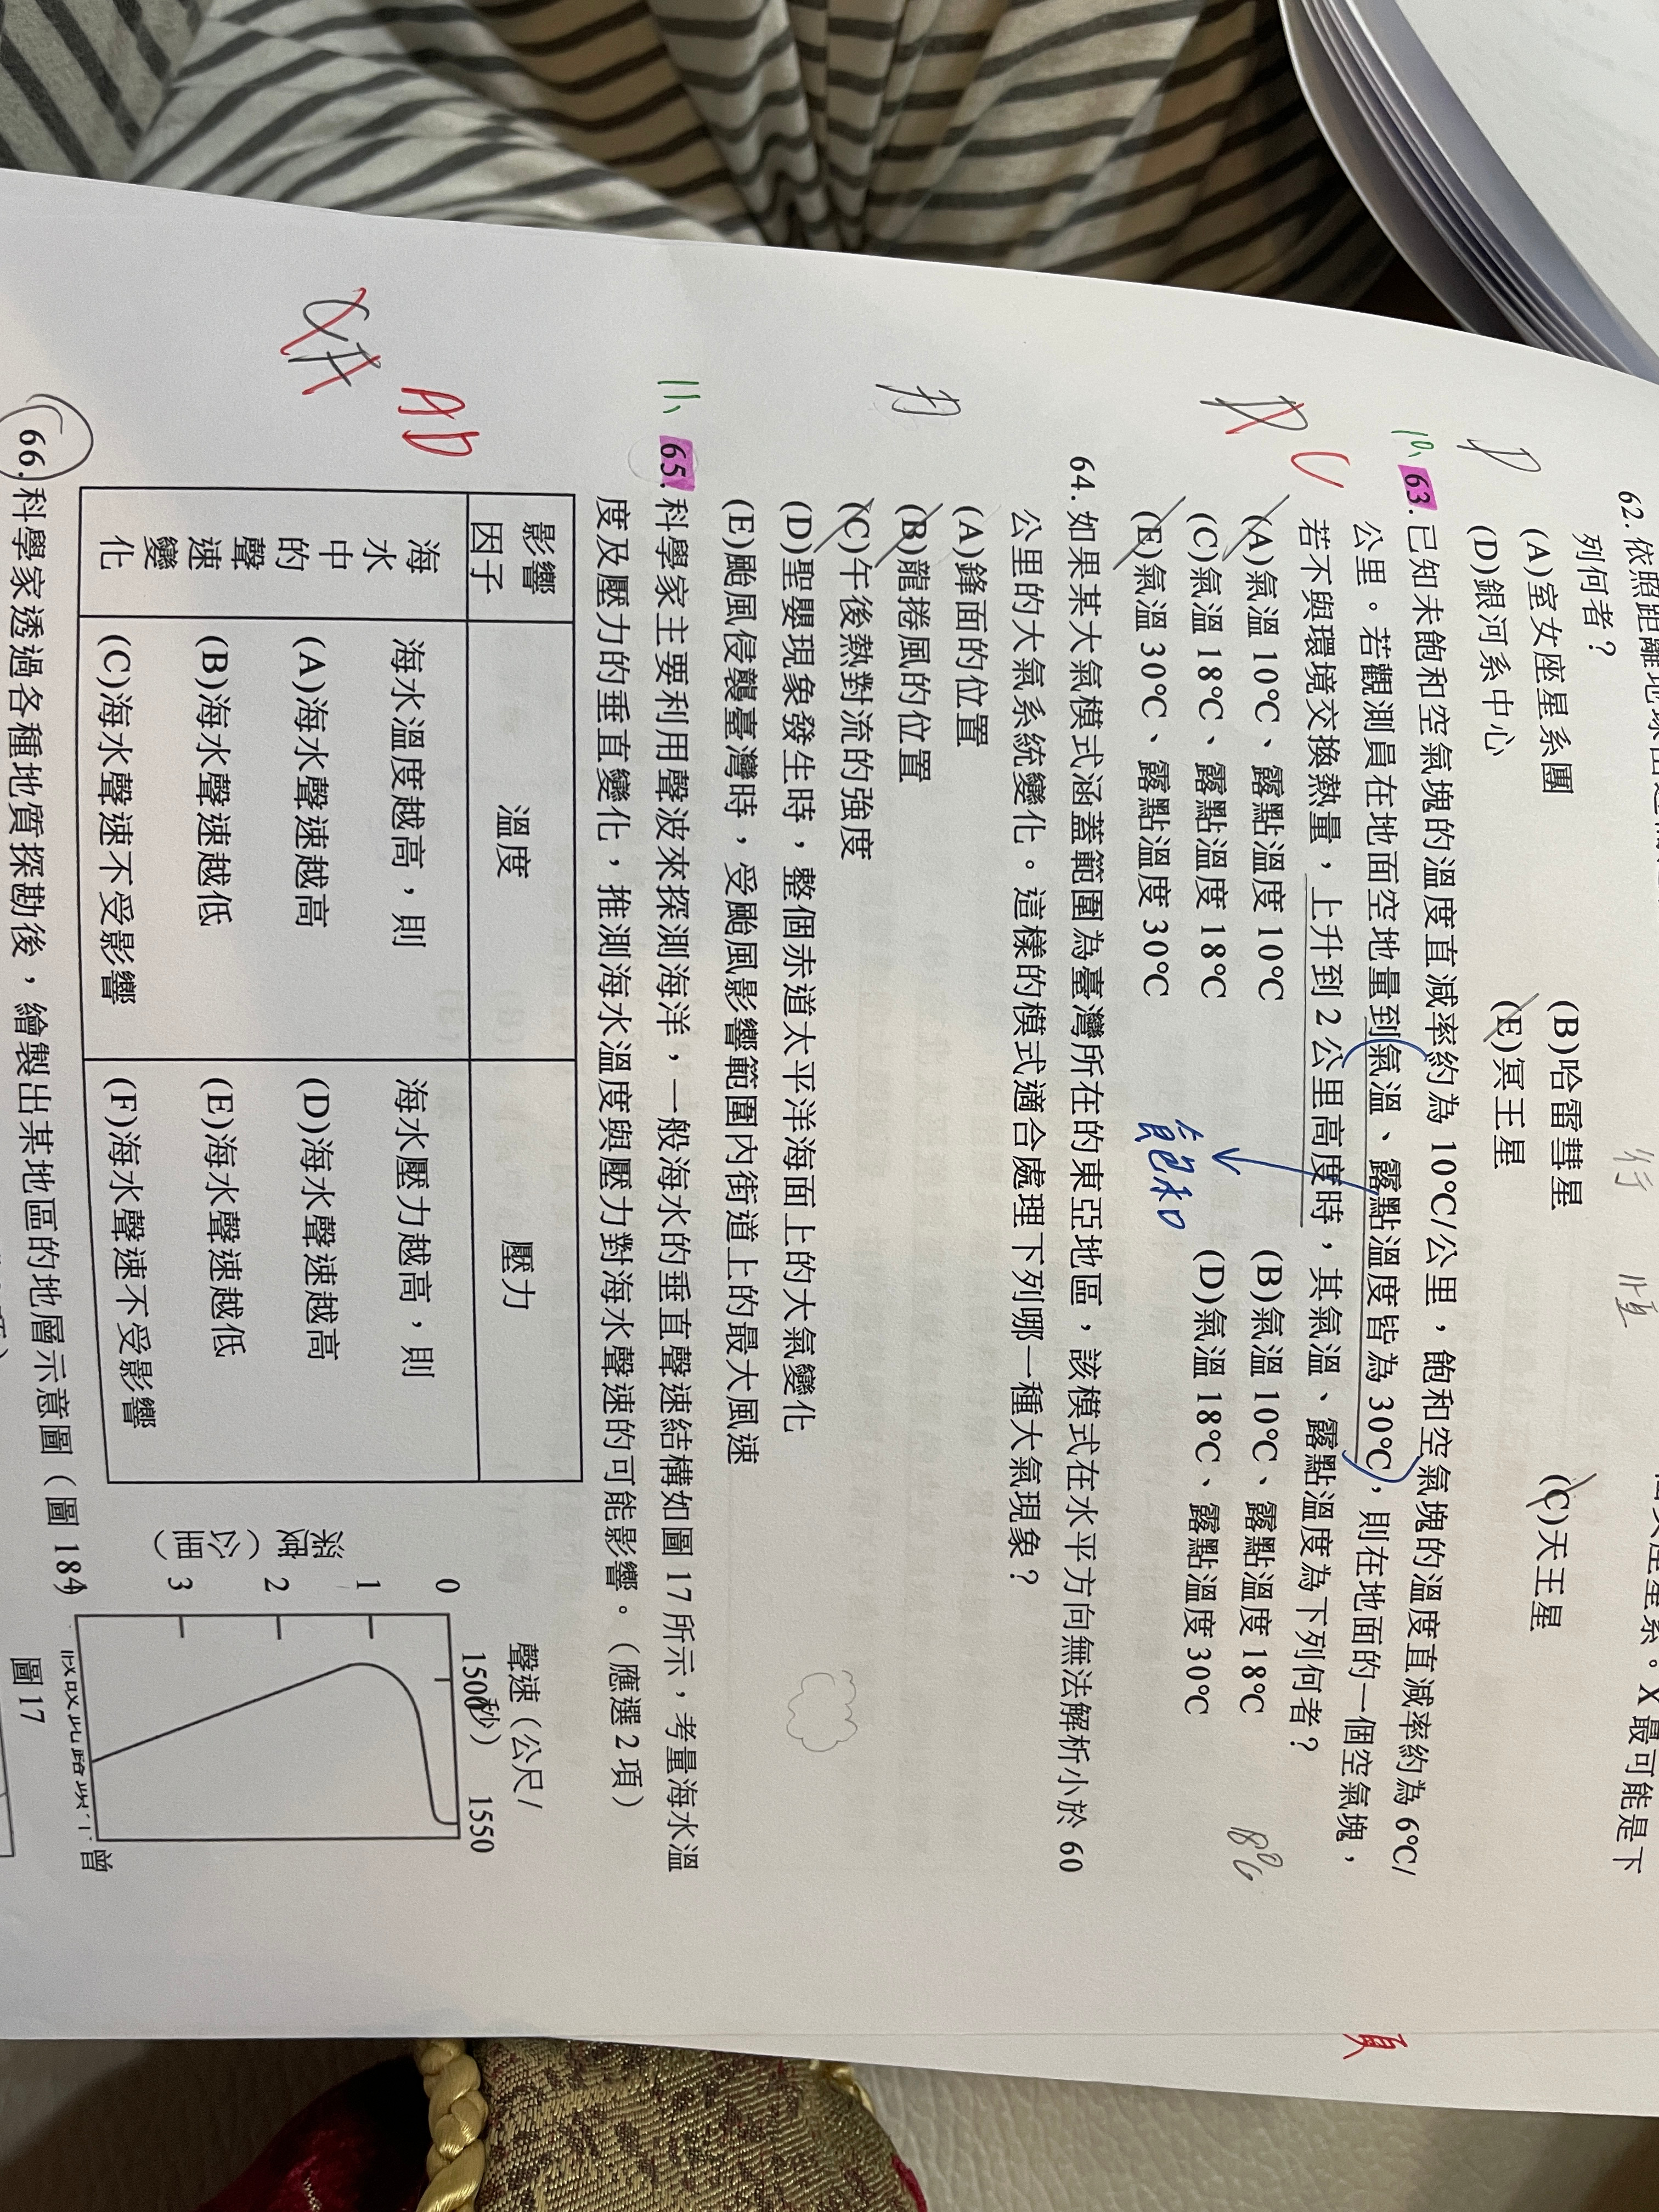 列何者？
(A)室女座星系團
(B)哈雷彗星
(C)天王星
(D)銀河系中心
(E)冥王星
10、
63.已知未飽和空氣塊的溫度直減率約為 10℃/公里，飽和空氣塊的溫度直減率約為 6℃/
公里。若觀測員在地面空地量到氣溫、露點溫度皆為 30℃，則在地面的一個空氣塊，
若不與環境交換熱量，上升到 2 公里高度時，其氣溫、露點溫度為下列何者？
(A)氣溫 10℃、露點溫度 10℃
(B)氣溫 10℃、露點溫度 18℃
(C)氣溫 18℃、露點溫度 18℃
(D)氣溫 18℃、露點溫度 30℃
(E)氣溫 30℃、露點溫度 30℃
飽和
64.如果某大氣模式涵蓋範圍為臺灣所在的東亞地區，該模式在水平方向無法解析小於 60
公里的大氣系統變化。這樣的模式適合處理下列哪一種大氣現象？
(A)鋒面的位置
(B)龍捲風的位置
(C)午後熱對流的強度
(D)聖嬰現象發生時，整個赤道太平洋海面上的大氣變化
(E)颱風侵襲臺灣時，受颱風影響範圍內街道上的最大風速
11、
65.科學家主要利用聲波來探測海洋，一般海水的垂直聲速結構如圖 17 所示，考量海水溫
度及壓力的垂直變化，推測海水溫度與壓力對海水聲速的可能影響。（應選 2 項）
AD
影響因子
溫度
壓力
海水中的聲速變化
海水溫度越高，則
(A)海水聲速越高
(B)海水聲速越低
(C)海水聲速不受影響
海水壓力越高，則
(D)海水聲速越高
(E)海水聲速越低
(F)海水聲速不受影響
聲速（公尺/
秒）
1500
1550
0
1
2
3
深度（公里）
圖 17
66.科學家透過各種地質探勘後，繪製出某地區的地層示意圖（圖 18